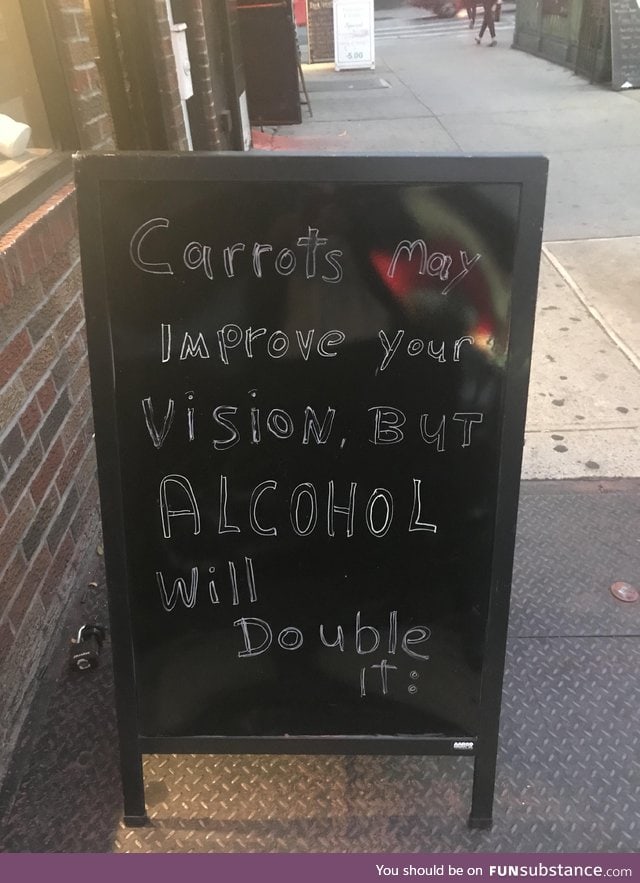 Carrots May
Improve your
Vision, But
ALCOHOL
Will
Double
it:
5.00
You should be on FUNsubstance.com